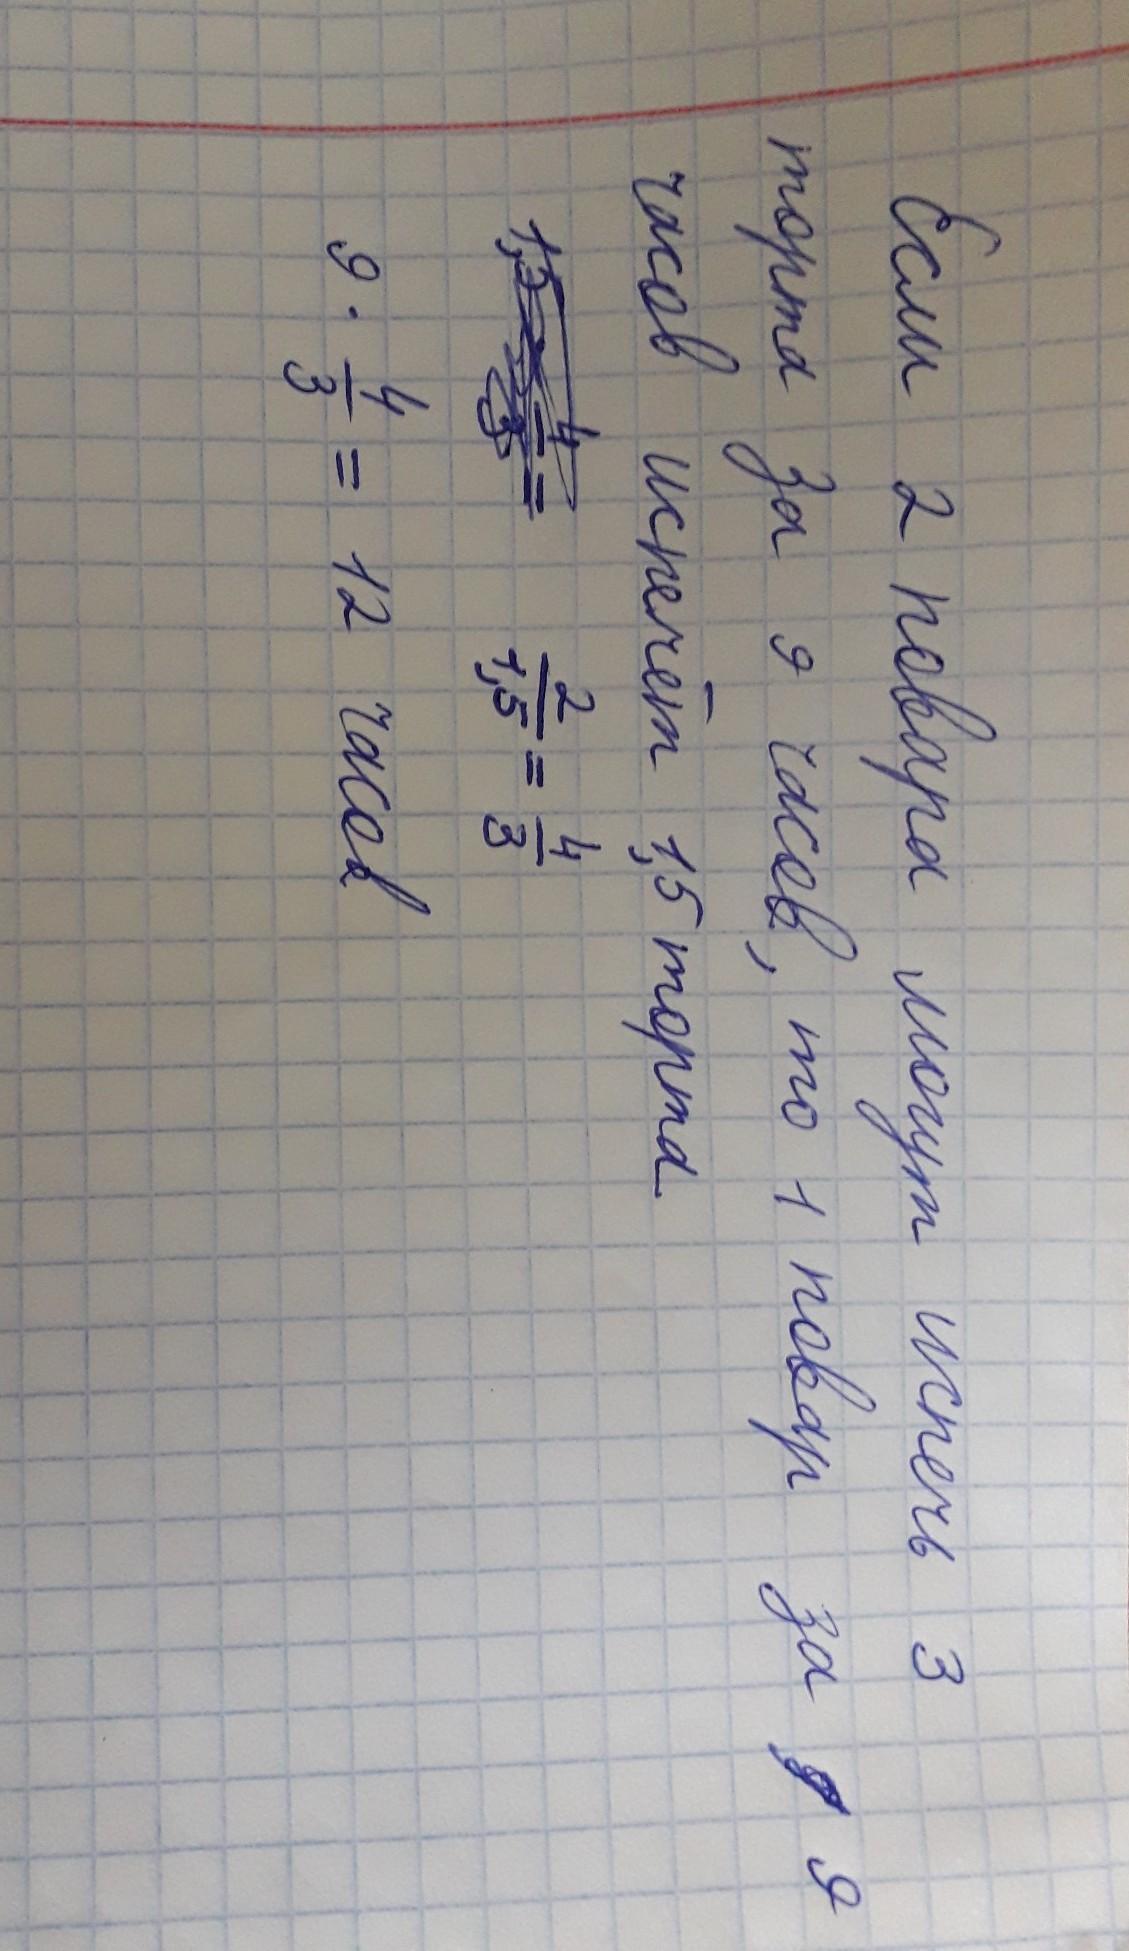 Если 2 повара могут испечь 3
торта за 9 часов, то 1 повар за 9
часов испечёт 1,5 торта
2/1,5 = 4/3
9 · 4/3 = 12 часов